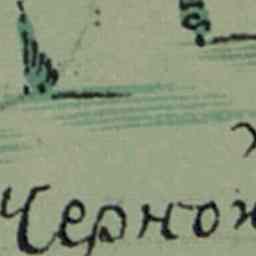 Черной